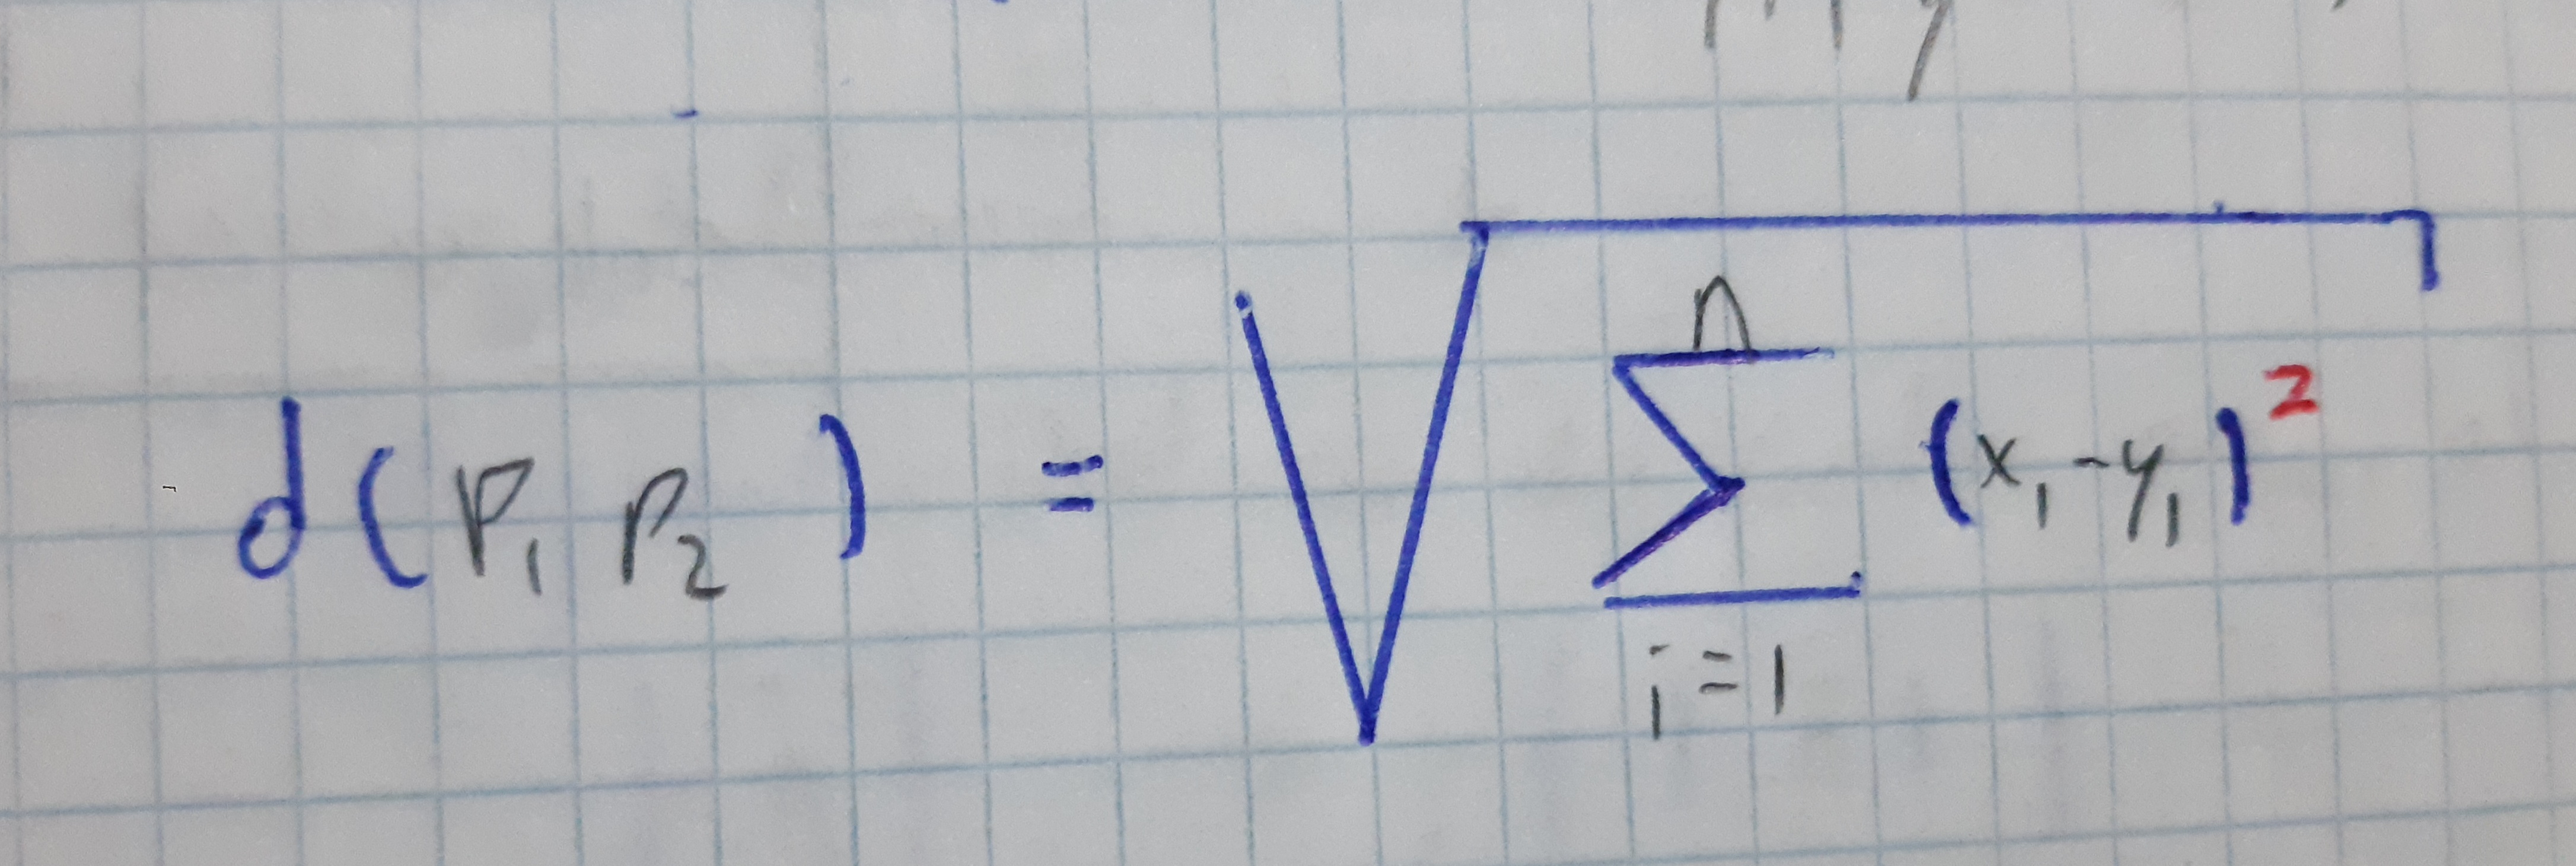 d(P₁ P₂) = √ ∑ⁿᵢ₌₁ (x₁ - y₁)²